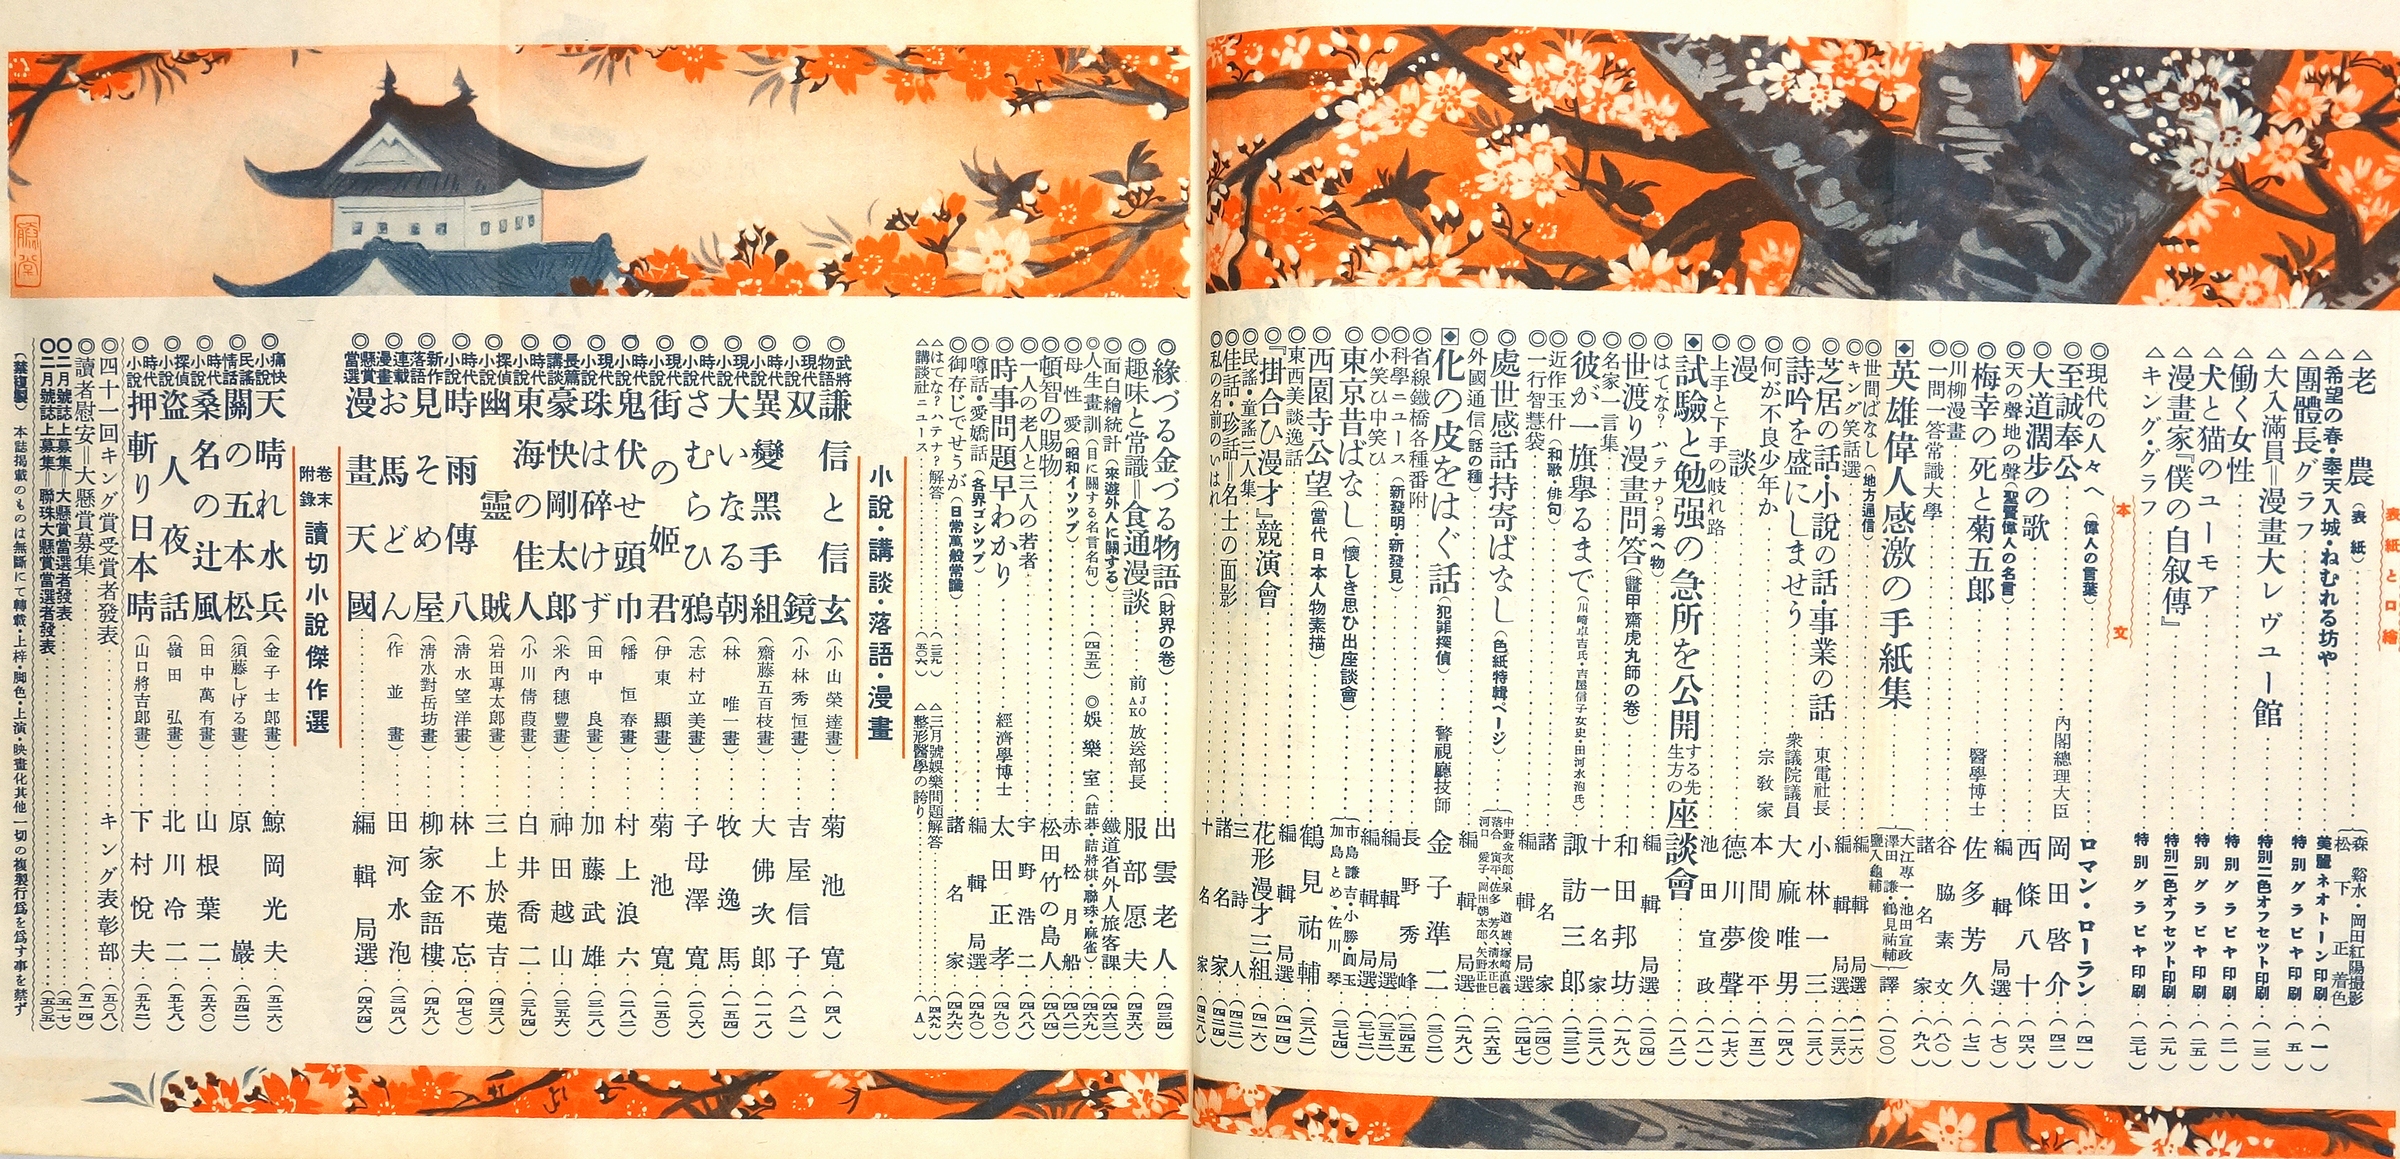 表紙と口繪
△老農(表紙)
△希望の春・奉天入城・ねむれる坊や
{森谿水・岡田紅陽撮影
松下正着色
美麗ネオトーン印刷‥(一)
△團體長グラフ‥特別グラビヤ印刷‥(五)
△大入滿員=漫畫大レヴュー館‥特別二色オフセット印刷‥(一三)
△働く女性‥特別グラビヤ印刷‥(二一)
△犬と猫のユーモア‥特別グラビヤ印刷‥(二五)
△漫畫家『僕の自叙傳』‥特別二色オフセット印刷‥(二九)
△キング・グラフ‥特別グラビヤ印刷‥(三七)
本文
◎現代の人々へ(偉人の言葉)‥ロマン・ローラン‥(四一)
◎至誠奉公‥内閣總理大臣 岡田啓介‥(四二)
◎大道濶歩の歌‥西條八十‥(四六)
◎天の聲地の聲(聖賢偉人の名言)‥編輯局選‥(七〇)
◎梅幸の死と菊五郎‥醫學博士 佐多芳久‥(七二)
◎川柳漫畫‥谷脇素文‥(八〇)
◎一問一答常識大學‥諸名家‥(九八)
◈英雄偉人感激の手紙集‥
{大江專一・池田宣政
澤田謙・鶴見祐輔
鹽入龜輔}譯‥(一〇〇)
◎世間ばなし(地方通信)‥編輯局選‥(一一六)
◎キング笑話選‥編輯局選‥(一三六)
◎芝居の話・小説の話・事業の話‥東電社長 小林一三‥(一三八)
◎詩吟を盛にしませう‥衆議院議員 大麻唯男‥(一四八)
◎何が不良少年か‥宗教家 本間俊平‥(一五二)
◎漫談‥德川夢聲‥(一七六)
◎上手と下手の岐れ路‥池田宣政
◈試驗と勉强の急所を公開する先生方の座談會‥(一八二)
◎はてな?ハテナ?(考へ物)‥編輯局選‥(二〇四)
◎世渡り漫畫問答(鼈甲齋虎丸師の卷)‥和田邦坊‥(一九八)
◎名家一言集‥十一名家‥(二二八)
◎彼が一旗擧るまで(川崎卓吉氏・吉屋信子女史・田河水泡氏)‥諏訪三郎‥(二三二)
◎近作玉什(和歌・俳句)‥諸名家‥(二四〇)
◎一行智慧袋‥編輯局選‥(二四七)
◎處世感話持寄ばなし(色紙特輯ページ)‥(二六五)
◎外國通信(話の種)‥編輯局選‥(二九八)
◈化の皮をはぐ話(犯罪探偵)‥警視廳技師 金子準二‥(三〇二)
◎省線鐵橋各種番附‥長野秀峰‥(三四五)
◎科學ニュース(新發明・新發見)‥編輯局選‥(三五二)
◎小笑ひ中笑ひ‥編輯局選‥(三七二)
◎東京昔ばなし(懷しき思ひ出座談會)‥
{市島謙吉・小勝・圓玉
加島とめ・佐川琴‥(三七四)
◎西園寺公望(當代日本人物素描)‥鶴見祐輔‥(三八二)
◎東西美談逸話‥編輯局選‥(四一四)
◎『掛合ひ漫才』競演會‥花形漫才三組‥(四一六)
◎民謠・童謠三人集‥三詩人‥(四二二)
◎佳話・珍話=名士の面影‥諸名家‥(四二四)
◎私の名前のいはれ‥十名家‥(四二八)
◎緣づる金づる物語(財界の卷)‥出雲老人‥(四三四)
◎趣味と常識=食通漫談‥前JOAK放送部長 服部愿夫‥(四五六)
◎面白繪統計(來遊外人に關する)‥鐵道省外人旅客課‥(四六三)
◎人生畫訓(日に關する名言名句)‥(四五五)
◎娛樂室(詰碁・詰將棋・聯珠・麻雀)‥(四六九)
◎母性愛(昭和イソップ)‥赤松月船‥(四八二)
◎頓智の賜物‥松田竹の島人‥(四八四)
◎一人の老人と三人の若者‥宇野浩二‥(四八八)
◎時事問題早わかり‥經濟學博士 太田正孝‥(四九〇)
◎噂話・愛嬌話(各界ゴシップ)‥編輯局選
◎御存じでせうが(日常萬般常識)‥諸名家‥(四九六)
△はてな?ハテナ?解答‥
△三月號娛樂問題解答‥
△講談社ニュース‥(五〇六)
△整形醫學の誇り‥(A)
小說・講談・落語・漫畫
◎武將物語 謙信と信玄(小山榮達畫)‥菊池寬‥(四八)
◎現代小說 双鏡(小林秀恒畫)‥吉屋信子‥(八二)
◎時代小說 異變黑手組(齋藤五百枝畫)‥大佛次郎‥(一一八)
◎現代小說 大いなる朝(林唯一畫)‥牧逸馬‥(一五八)
◎時代小說 さむらひ鴉(志村立美畫)‥子母澤寬‥(二〇六)
◎現代小說 街の姬君(伊東顯畫)‥菊池寬‥(二五〇)
◎時代小說 鬼伏せ頭巾(幡恒春畫)‥村上浪六‥(二八二)
◎現代小說 珠は碎けず(田中良畫)‥加藤武雄‥(三二八)
◎長篇講談 豪快剛太郎(米內穗豐畫)‥神田越山‥(三五六)
◎時代小說 東海の佳人(小川倩葭畫)‥白井喬二‥(三九四)
◎探偵小說 幽靈賊(岩田專太郎畫)‥三上於菟吉‥(四三八)
◎時代小說 時雨傳八(淸水望洋畫)‥林不忘‥(四七〇)
◎新作落語 見そめ屋(淸水對岳坊畫)‥柳家金語樓‥(四九八)
◎連載漫畫 お馬どん(作並畫)‥田河水泡‥(三四八)
◎懸賞當選 漫畫天國‥編輯局選‥(四六四)
卷末附錄 讀切小說傑作選
◎痛快小說 天晴れ水兵(金子士郎畫)‥鯨岡光夫‥(五二六)
◎民謠情話 關の五本松(須藤しげる畫)‥原巖‥(五四二)
◎時代小說 桑名の辻風(田中萬有畫)‥山根葉二‥(五六〇)
◎探偵小說 盗人夜話(嶺田弘畫)‥北川冷二‥(五七八)
◎時代小說 押斬り日本晴(山口將吉郎畫)‥下村悅夫‥(五九二)
◎四十一回キング賞受賞者發表‥キング表彰部‥(五〇八)
◎讀者慰安=大懸賞募集‥(五一四)
〇二月號誌上募集=大懸賞當選者發表‥(五一七)
〇二月號誌上募集=聯珠大懸賞當選者發表‥(五〇五)
(禁複製) 本誌揭載のものは無斷にて轉載・上梓・脚色・上演・映畫化其他一切の複製行爲を爲す事を禁ず